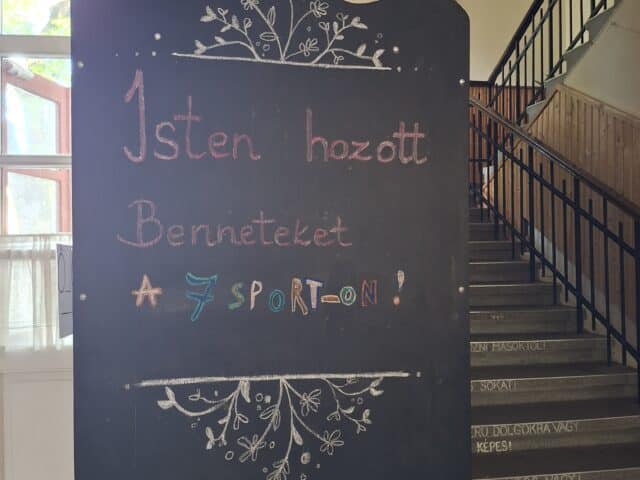 Isten hozott
Benneteket
A 7 SPORT-ON!
MÁSOKTÓL!
SOKAT!
DOLGOKRA VAGY
KÉPES!